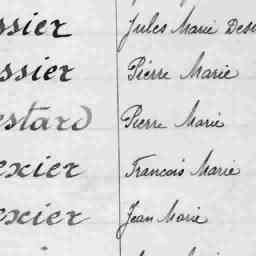 ssier Jules Marie Des
ssier Pierre Marie
estard Pierre Marie
exier Francois Marie
exier Jean Marie